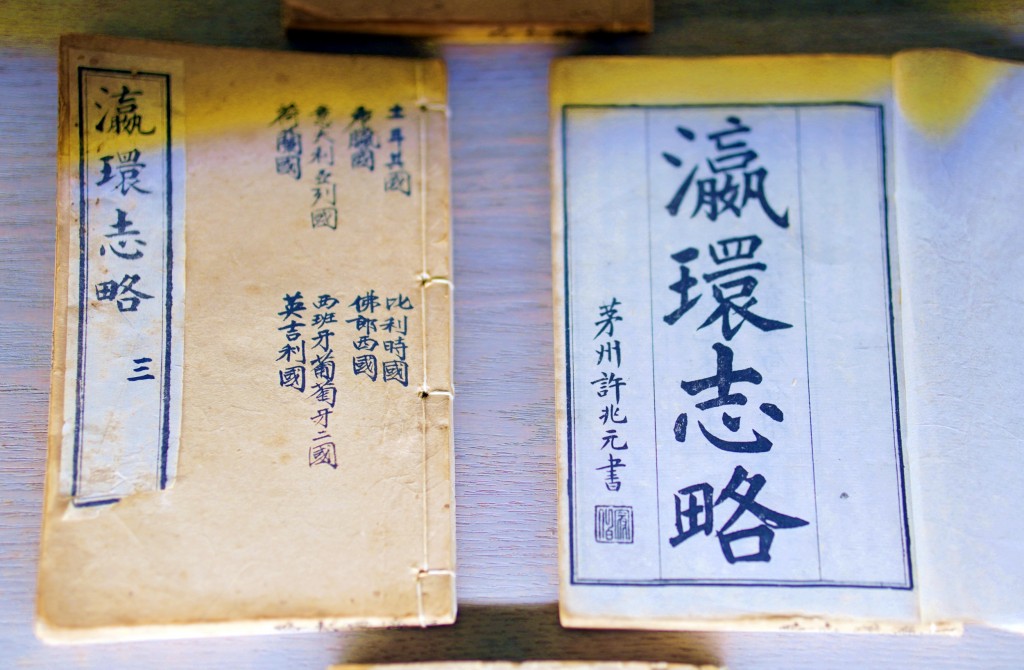 瀛環志略
三
土耳其國
希臘國
意大利亞列國
荷蘭國
比利時國
佛郎西國
西班牙葡萄牙二國
英吉利國
瀛環志略
茅州許兆元書